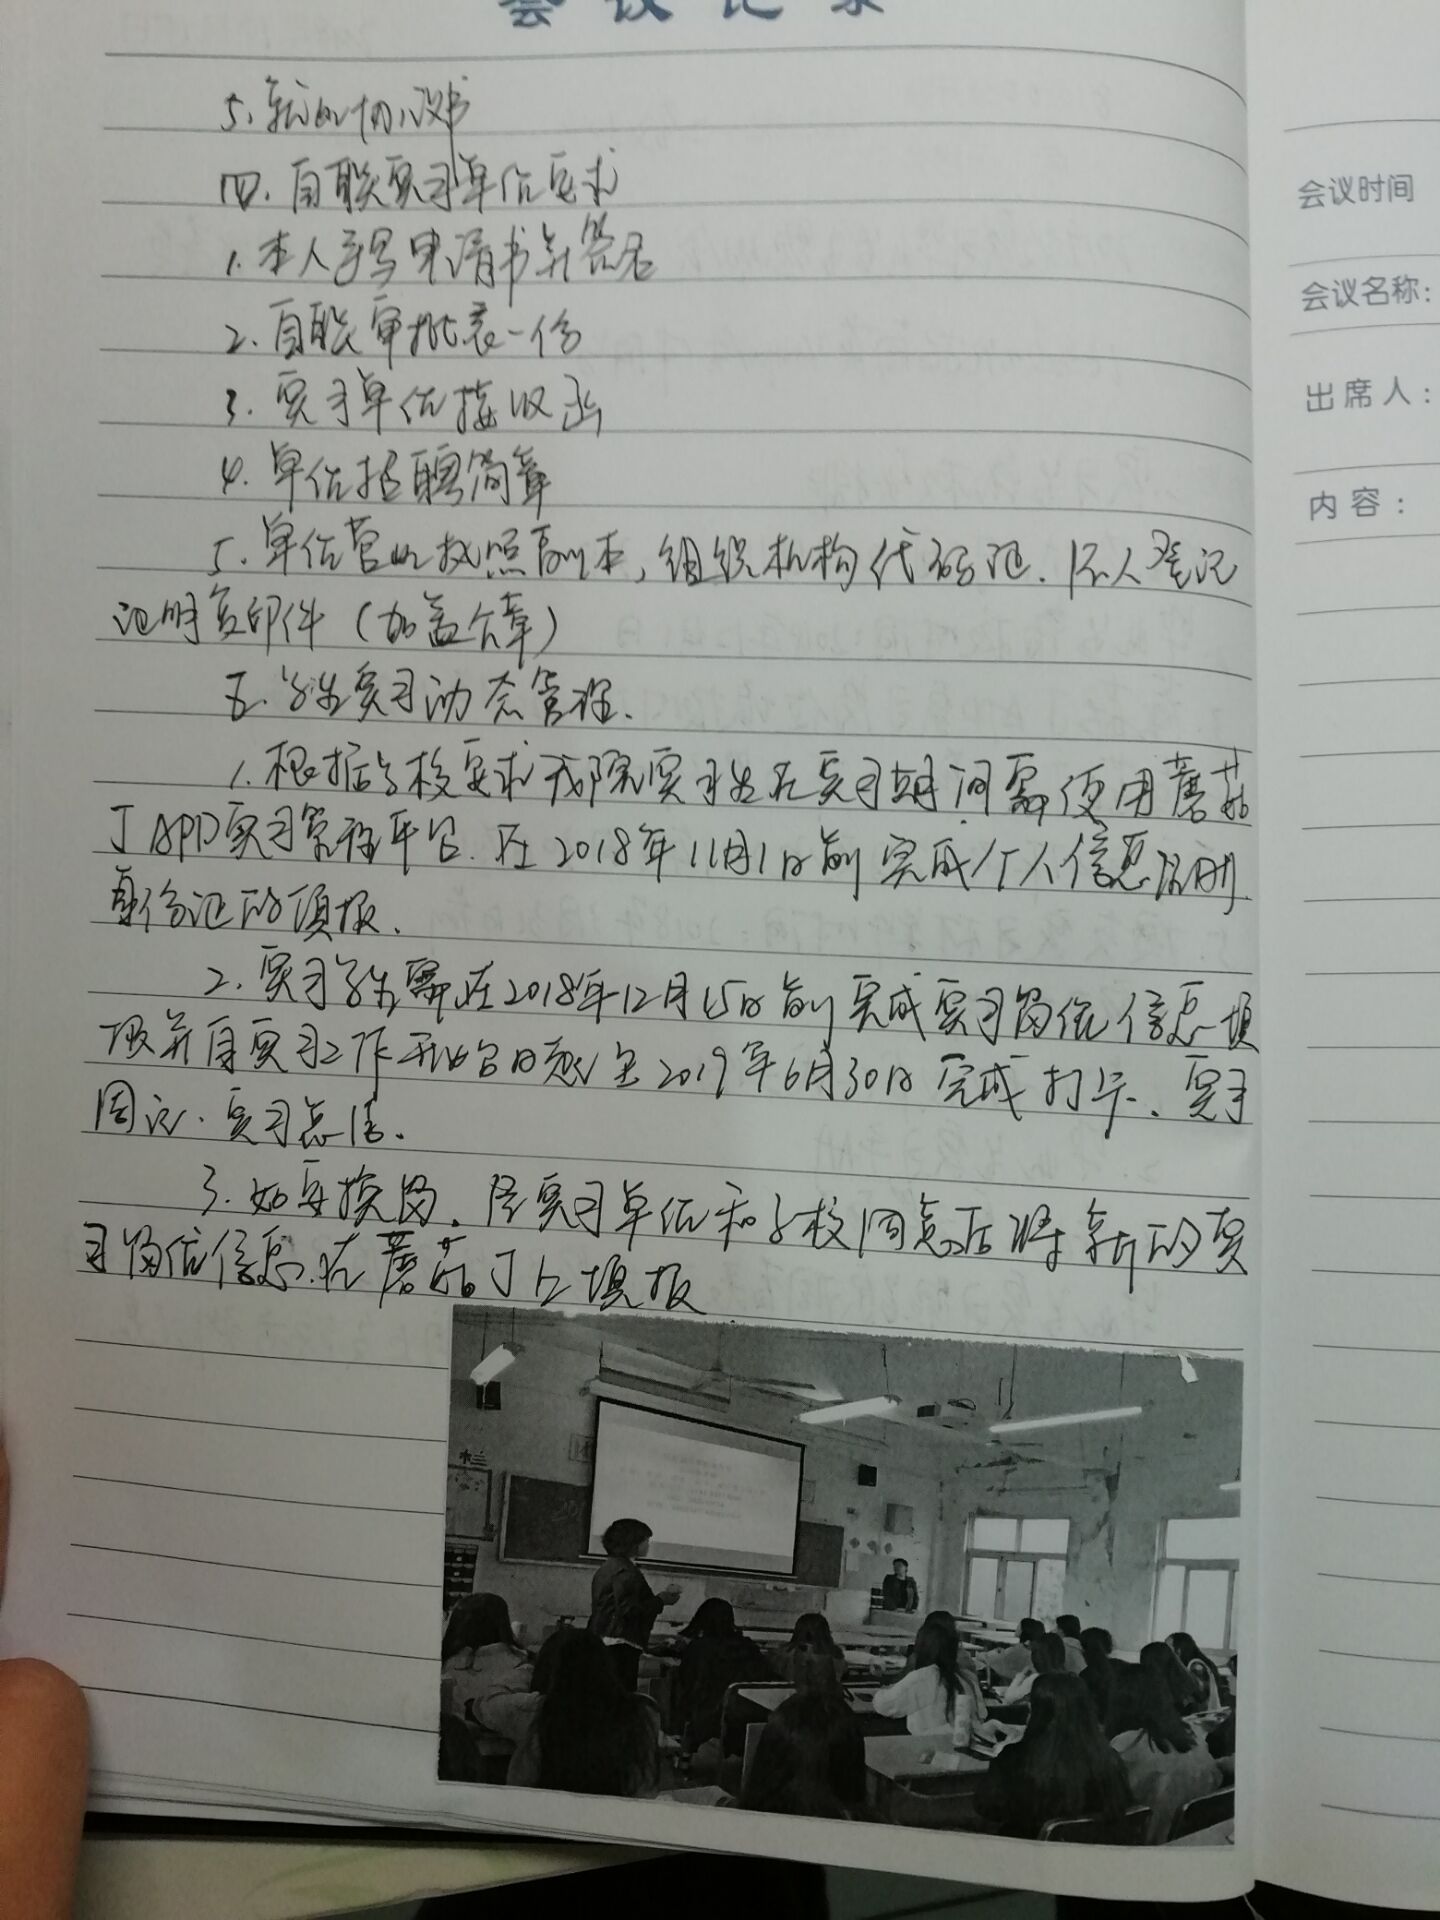 会议记录
5. 就业协议书
四. 自联实习单位要求
1. 本人手写申请书并签名
2. 自联审批表一份
3. 实习单位接收函
4. 单位招聘简章
5. 单位营业执照副本, 组织机构代码证. 法人登记
证明复印件 (加盖公章)
五. 学生实习动态管理.
1. 根据学校要求我院实习生在实习期间需使用蘑菇
丁APP实习管理平台. 在2018年11月1日前完成个人信息
身份证的填报.
2. 实习学生需在2018年12月15日前完成实习岗位信息填
报并自实习工作开始日起至2019年6月30日完成打卡、实习
周记、实习总结.
3. 如要换岗. 经实习单位和学校同意后将新的实
习岗位信息. 在蘑菇丁上填报
会议时间
会议名称:
出席人:
内容: